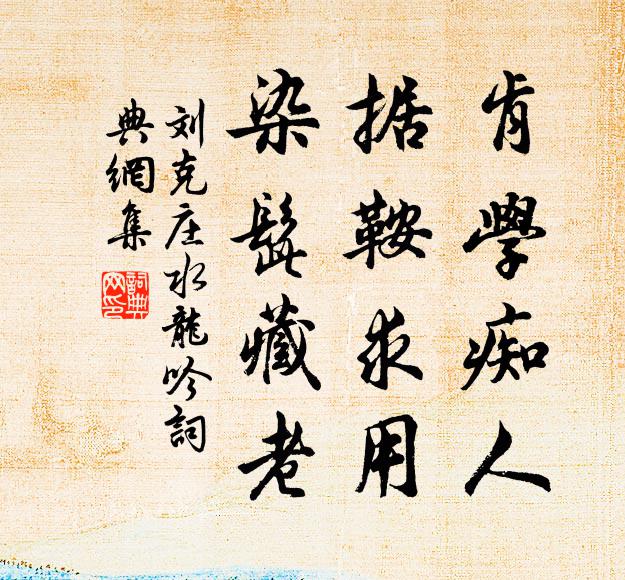 肯學痴人
据鞍求用
染髭藏老
刘克庄水龍吟詞
典網集
詞典
网印